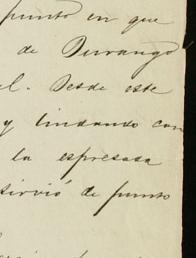 punto en que
de Durango
el. Desde este
y lindando con
la espresada
sirvió de punto